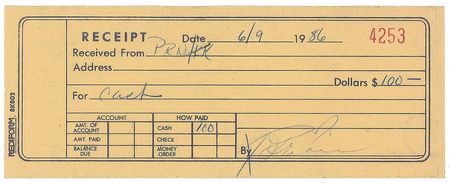 RECEIPT Date 6/9 1986 4253
Received From
Address
Dollars $100—
For Cash
ACCOUNT HOW PAID
AMT. OF ACCOUNT CASH 100
AMT. PAID CHECK
BALANCE DUE MONEY ORDER
By
REDIFORM 8K802